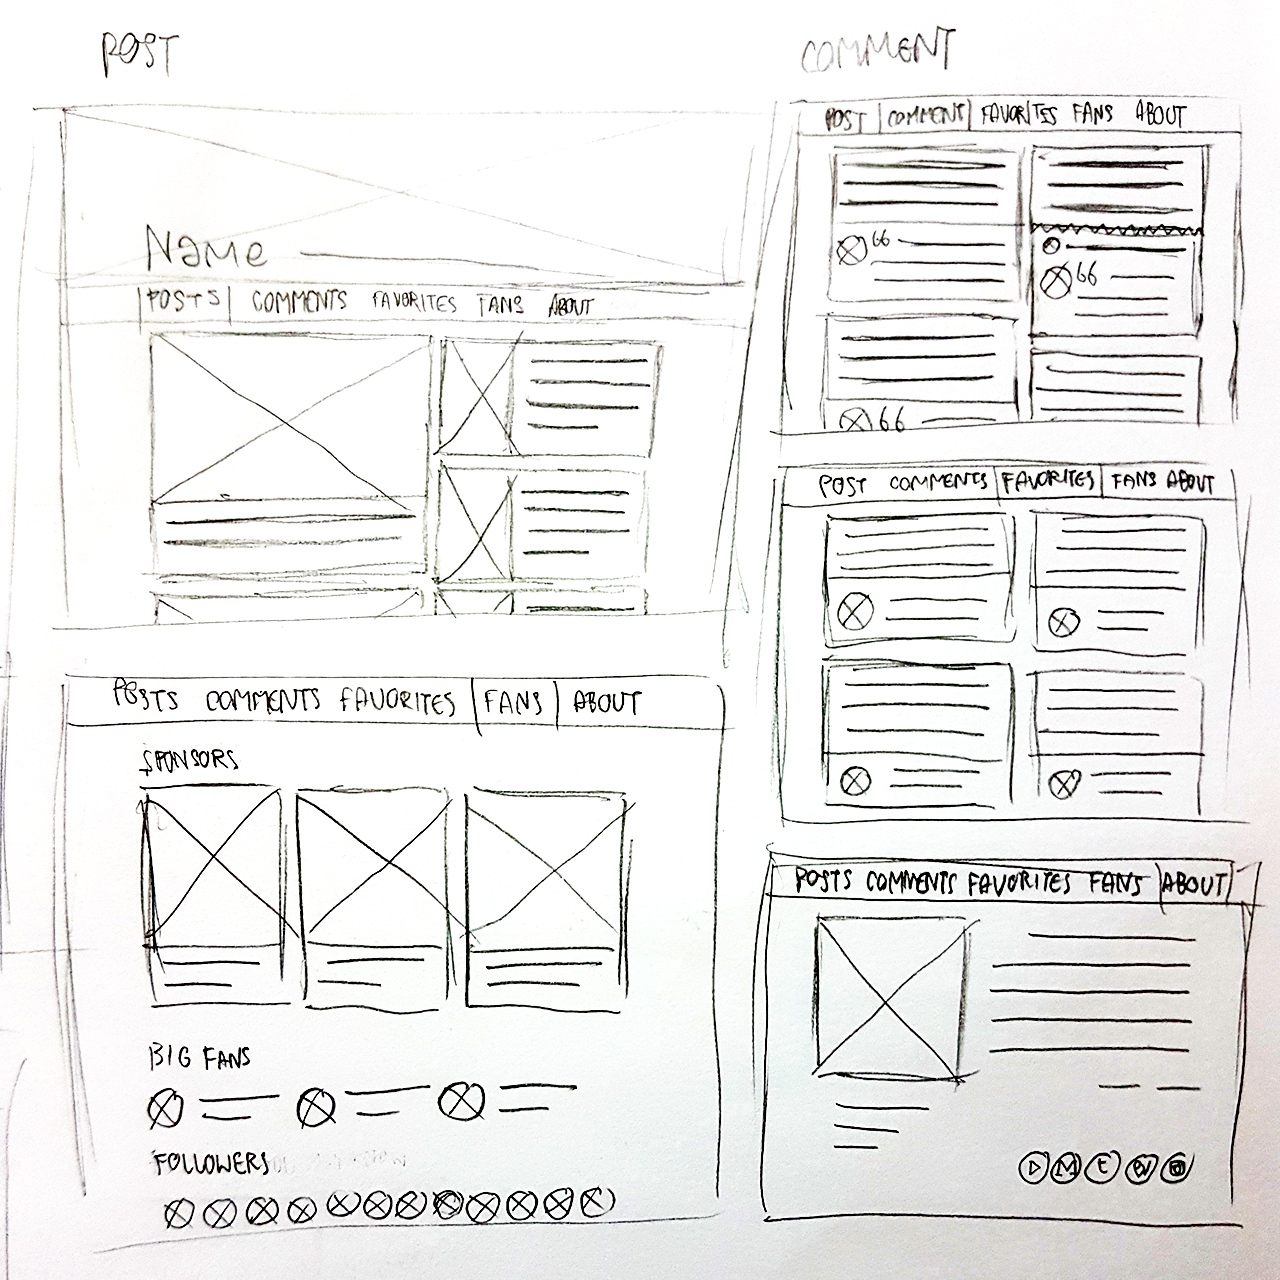 POST
Name
POSTS COMMENTS FAVORITES FANS ABOUT
POSTS COMMENTS FAVORITES FANS ABOUT
SPONSORS
BIG FANS
FOLLOWERS
COMMENT
POST COMMENT FAVORITES FANS ABOUT
66
66
66
POST COMMENTS FAVORITES FANS ABOUT
POSTS COMMENTS FAVORITES FANS ABOUT